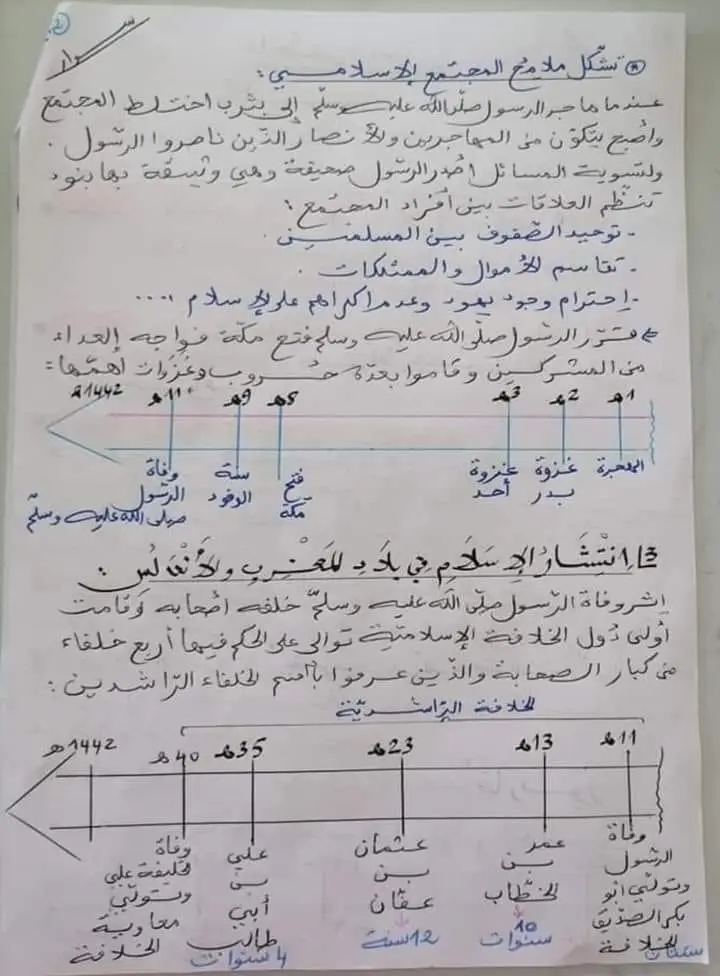 * تشكل ملامح المجتمع الإسلامي :
عندما هاجر الرسول صلى الله عليه وسلم إلى يثرب اختلط المجتمع
وأصبح يتكون من المهاجرين والأنصار الذين ناصروا الرسول .
ولتسوية المسائل أصدر الرسول صحيفة وهي وثيقة بها بنود
تنظم العلاقات بين أفراد المجتمع :
- توحيد الصفوف بين المسلمين
- تقاسم الأموال والممتلكات .
- إحترام وجود يهود وعدم إكراههم على الإسلام .....
⇐ قرر الرسول صلى الله عليه وسلم فتح مكة فواجه العداء
من المشركين وقاموا بعدة حروب وغزوات أهمها :
1هـ 2هـ 3هـ 8هـ 9هـ 11هـ 1442هـ
الهجرة
غزوة بدر
غزوة أحد
فتح مكة
سنة الوفود
وفاة الرسول صلى الله عليه وسلم
3) انتشار الإسلام في بلاد المغرب والأندلس :
إثر وفاة الرسول صلى الله عليه وسلم خلفه أصحابه وقامت
أولى دول الخلافة الإسلامية توالى على الحكم فيها أربع خلفاء
من كبار الصحابة والذين عرفوا باسم الخلفاء الراشدين :
الخلافة الراشدية
11هـ 13هـ 23هـ 35هـ 40هـ 1442هـ
وفاة الرسول وتولي أبو بكر الصديق الخلافة
سنتان
عمر بن الخطاب
10 سنوات
عثمان بن عفان
12 سنة
علي بن أبي طالب
4 سنوات
وفاة الخليفة علي وتولي معاوية الخلافة